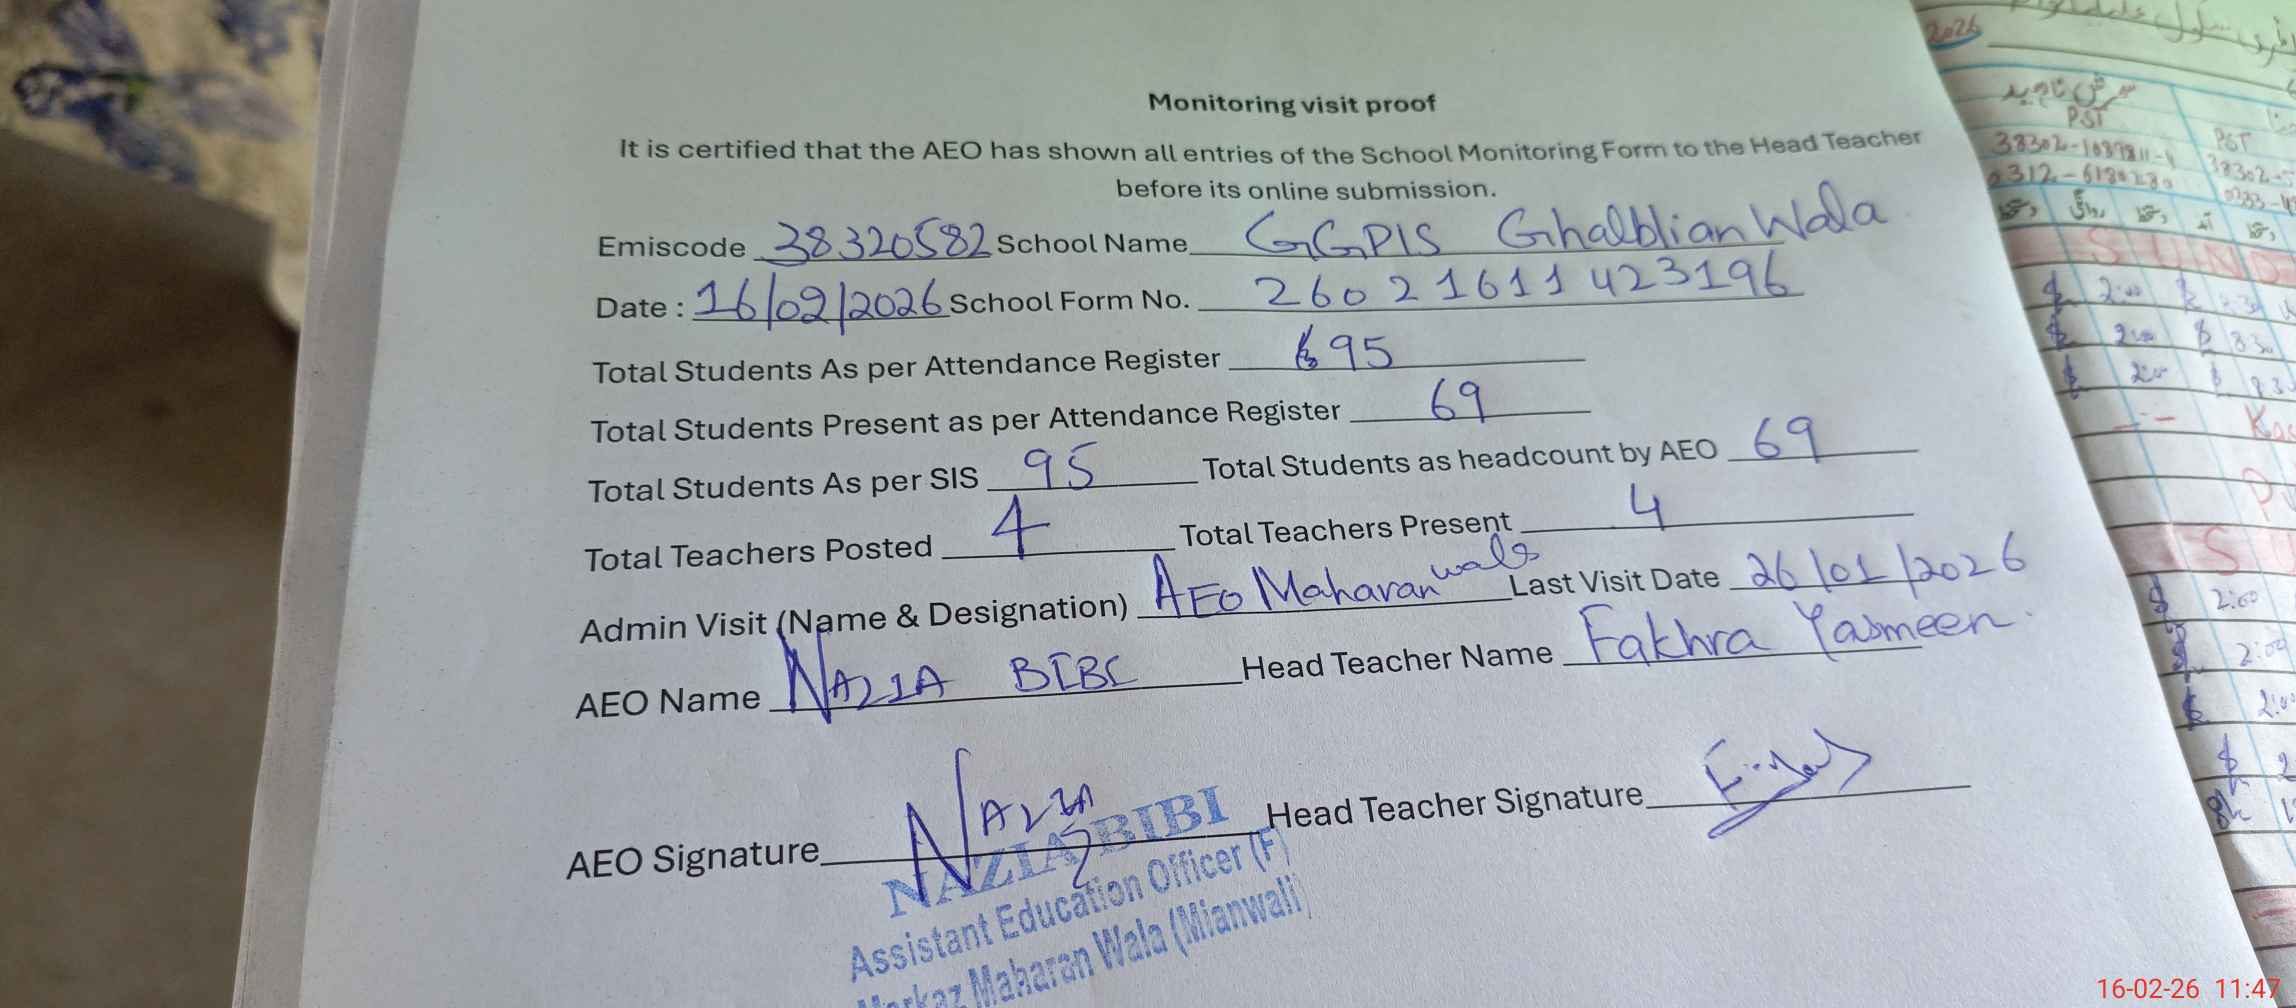 Monitoring visit proof
It is certified that the AEO has shown all entries of the School Monitoring Form to the Head Teacher
before its online submission.
Emiscode 38320582 School Name GGPIS Ghalblian Wala
Date : 16/02/2026 School Form No. 26021611423196
Total Students As per Attendance Register 95
Total Students Present as per Attendance Register 69
Total Students As per SIS 95 Total Students as headcount by AEO 69
Total Teachers Posted 4 Total Teachers Present 4
Admin Visit (Name & Designation) AEO Maharanwala Last Visit Date 26/01/2026
AEO Name NAZIA BIBI Head Teacher Name Fakhra Yasmeen.
AEO Signature NAZIA Head Teacher Signature
NAZIA BIBI
Assistant Education Officer (F)
Markaz Maharan Wala (Mianwali)
2026
PST
PST
38302-
0312-6180280
SUND
2:00
2:00
2:00
S
2:00
2:00
16-02-26 11:47